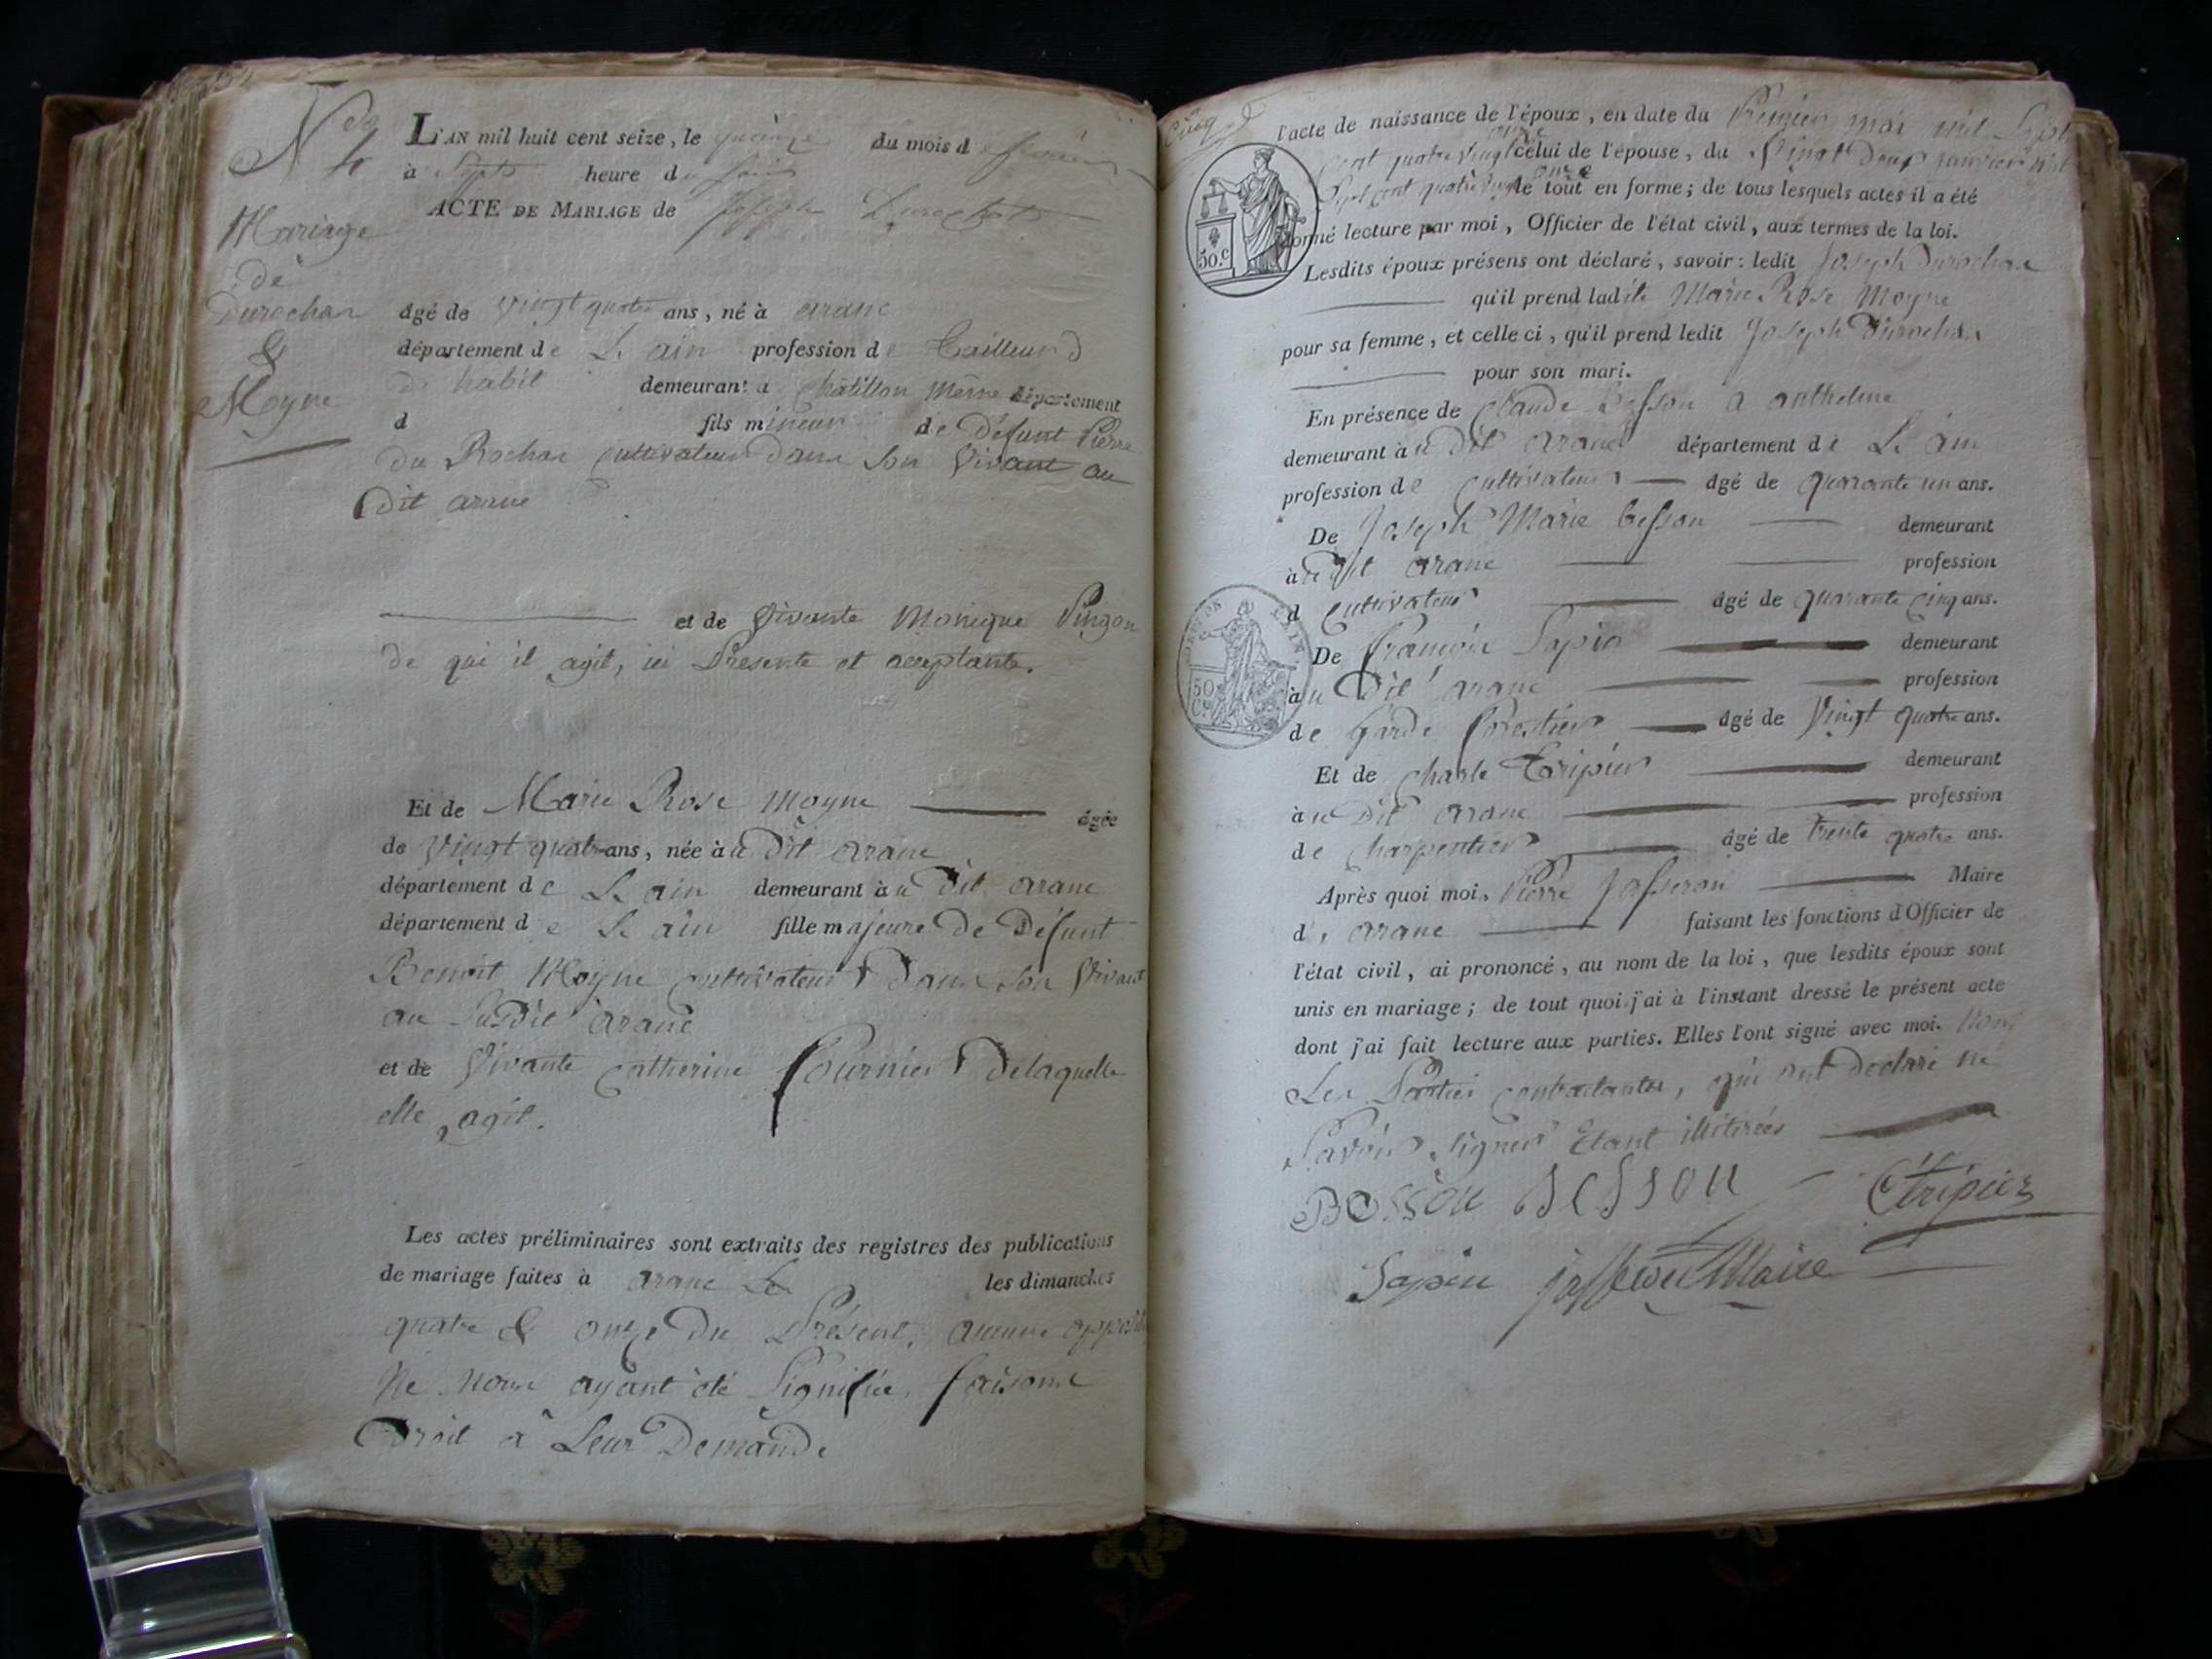 N 4
L'AN mil huit cent seize, le quinze du mois de fevrier
à Sept heure du soir
ACTE DE MARIAGE de Joseph Durochat
Mariage
de
Durochat
&
Moyne
âgé de vingt quatre ans, né à arane
département de L'ain profession de tailleur d
de habit demeurant a Chatillon département
d fils mineur de Défunt Pierre
Du Rochat Cultivateur dans son vivant au
Dit arane
et de vivante Monique Pingon
de qui il agit, ici Présente et acceptante.
Et de Marie Rose Moyne âgée
de vingt quatre ans, née à u Dit arane
département de L'ain demeurant à u Dit arane
département de L'ain fille majeure De Défunt
Benoit Moyne cultivateur Dans son vivant
au Susdit arane
et de vivante Catherine fournier Delaquelle
elle agit.
Les actes préliminaires sont extraits des registres des publications
de mariage faites à arane Les les dimanches
quatre & onze Du Présent, aucune opposit
Ne Nous ayant été Signifiée, faisons
Droit a Leur Demande
Cinq
l'acte de naissance de l'époux, en date du Premier mai mil Sept
Cent quatre vingt onze celui de l'épouse, du Vingt Deux janvier mil
Sept cent quatre vingt onze le tout en forme; de tous lesquels actes il a été
donné lecture par moi, Officier de l'état civil, aux termes de la loi.
50.c
Lesdits époux présens ont déclaré, savoir: ledit Joseph Durochat
qu'il prend ladite Marie Rose Moyne
pour sa femme, et celle ci, qu'il prend ledit Joseph Durochat
pour son mari.
En présence de Claude Besson a anthelme
demeurant à u Dit arane département de L'ain
profession de Cultivateur âgé de quarante un ans.
De Joseph Marie besson demeurant
à u dit arane profession
d Cultivateur âgé de quarante cinq ans.
De François Sapin demeurant
50 C.
à u Dit arane profession
de Garde forestier âgé de Vingt quatre ans.
Et de Charle Tripier demeurant
à u Dit arane profession
de Charpentier âgé de trente quatre ans.
Après quoi moi, Pierre Jasseron Maire
d' arane faisant les fonctions d'Officier de
l'état civil, ai prononcé, au nom de la loi, que lesdits époux sont
unis en mariage; de tout quoi j'ai à l'instant dressé le présent acte
dont j'ai fait lecture aux parties. Elles l'ont signé avec moi. Non
Les Parties contractantes, qui ont declaré ne
Savoir signer Etant illitirées
BESSON BESSON Ctripier
Sapin jasseron Maire